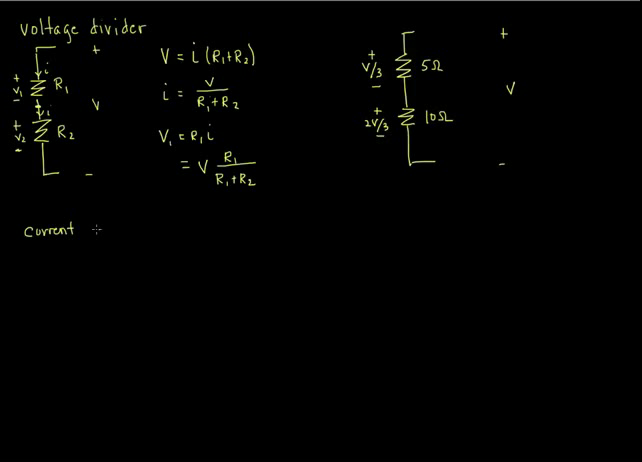 voltage divider
+
i
+
V1
-
R1
i
V
+
V2
-
R2
-
V = i (R1+R2)
i = V / R1+R2
V1 = R1 i
= V R1 / R1+R2
+
+
V/3
-
5Ω
V
+
2V/3
-
10Ω
-
current